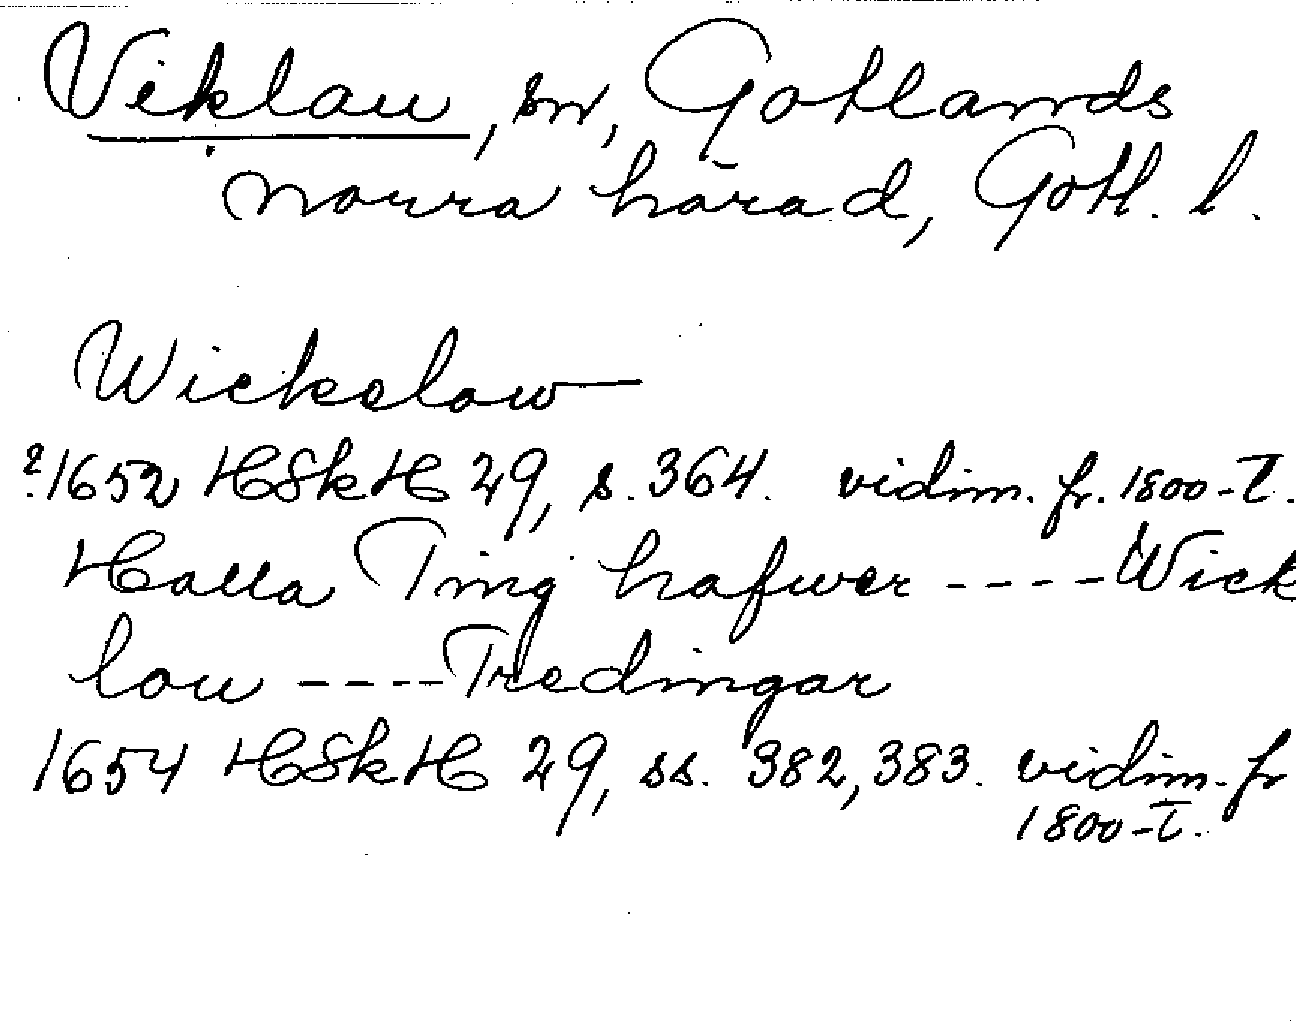 Viklau, sn, Gotlands
norra härad, Gotl. l.
Wickelow
?1652 HSkH 29, s. 364. vidim. fr. 1800-T.
Halla Ting hafwer ---- Wick
lou ---- Tredingar
1654 HSkH 29, ss. 382, 383. vidim. fr
1800-T.